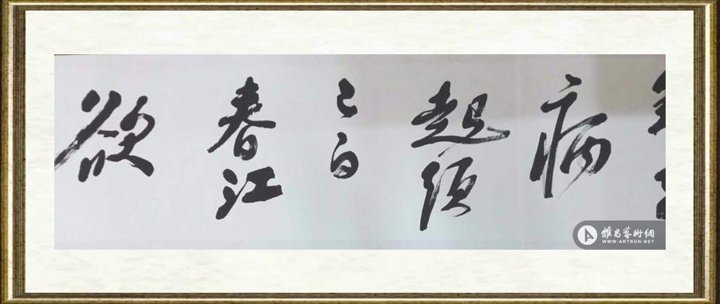 病
起須
已白
春江
欲
雅昌藝術網
WWW.ARTRON.NET